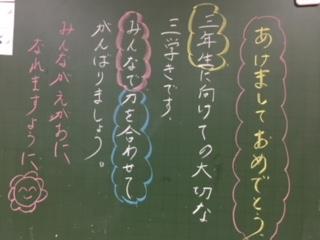 あけましておめでとう
三年生に向けての大切な
三学きです。
みんなで力を合わせて
がんばりましょう。
みんながえがおに
なれますように